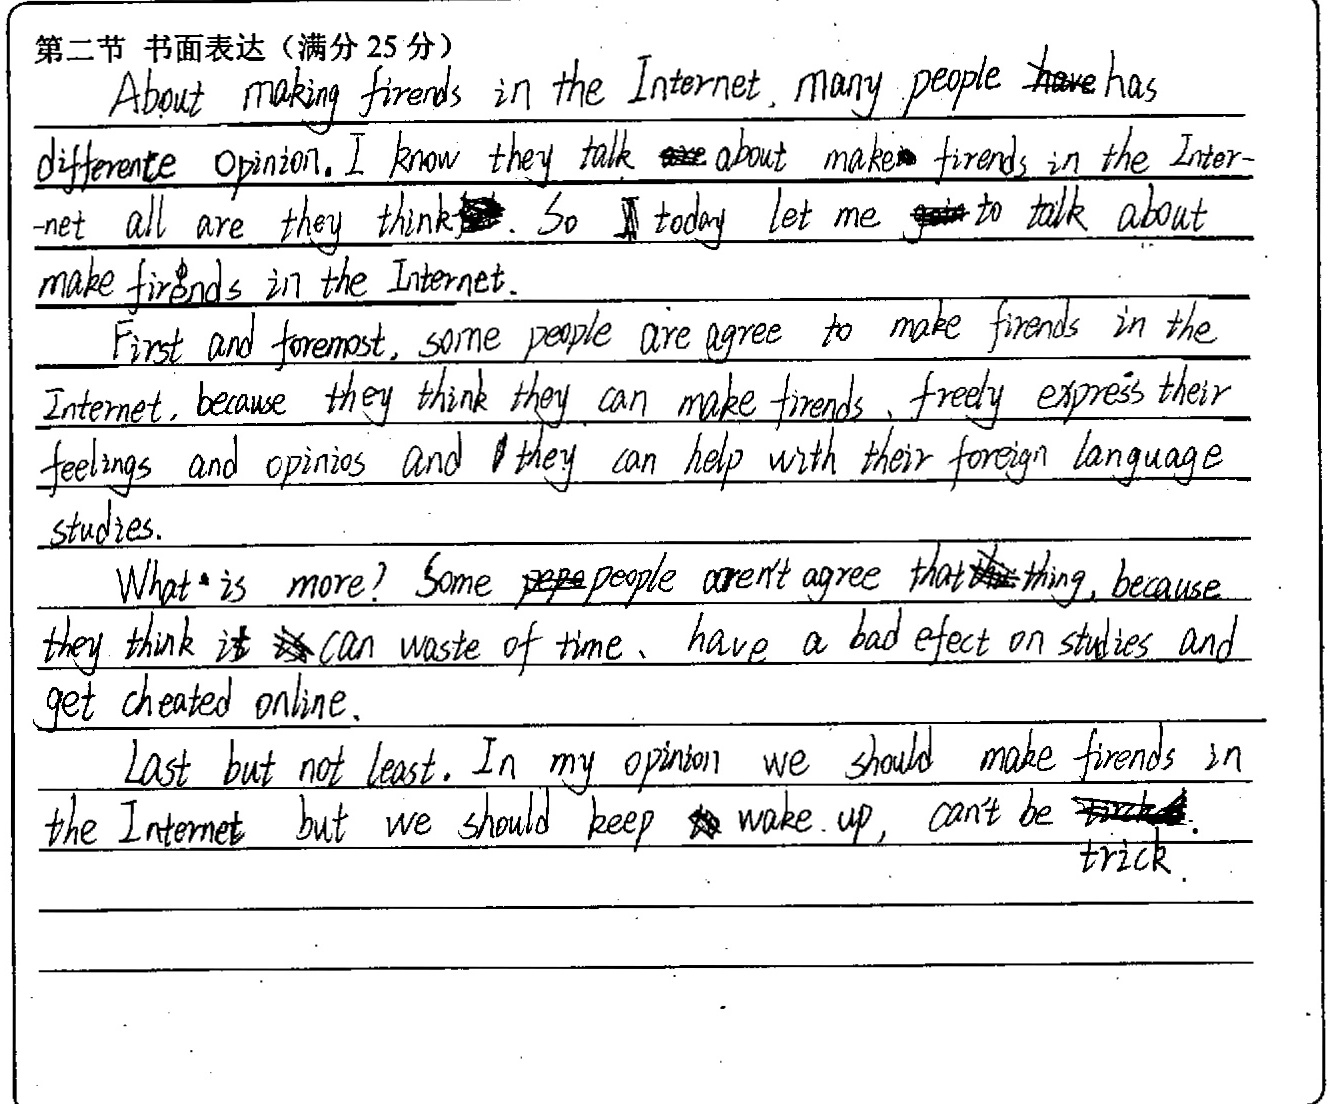 第二节 书面表达（满分 25 分）
About making firends in the Internet, many people has
differente opinion. I know they talk about make firends in the Inter-
-net all are they think. So today let me to talk about
make firends in the Internet.
First and foremost, some people are agree to make firends in the
Internet, because they think they can make firends, freely express their
feelings and opinios and they can help with their foreign language
studies.
What is more? Some people aren't agree that thing, because
they think it can waste of time、have a bad efect on studies and
get cheated online.
Last but not least. In my opinion we should make firends in
the Internet but we should keep wake up, can't be
trick.